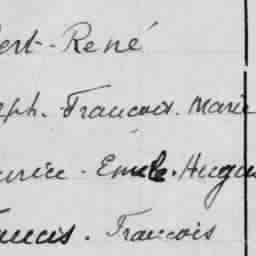 ert-René
eph. Francois. Marie
urice. Emile. Hugu
ancis. Francois